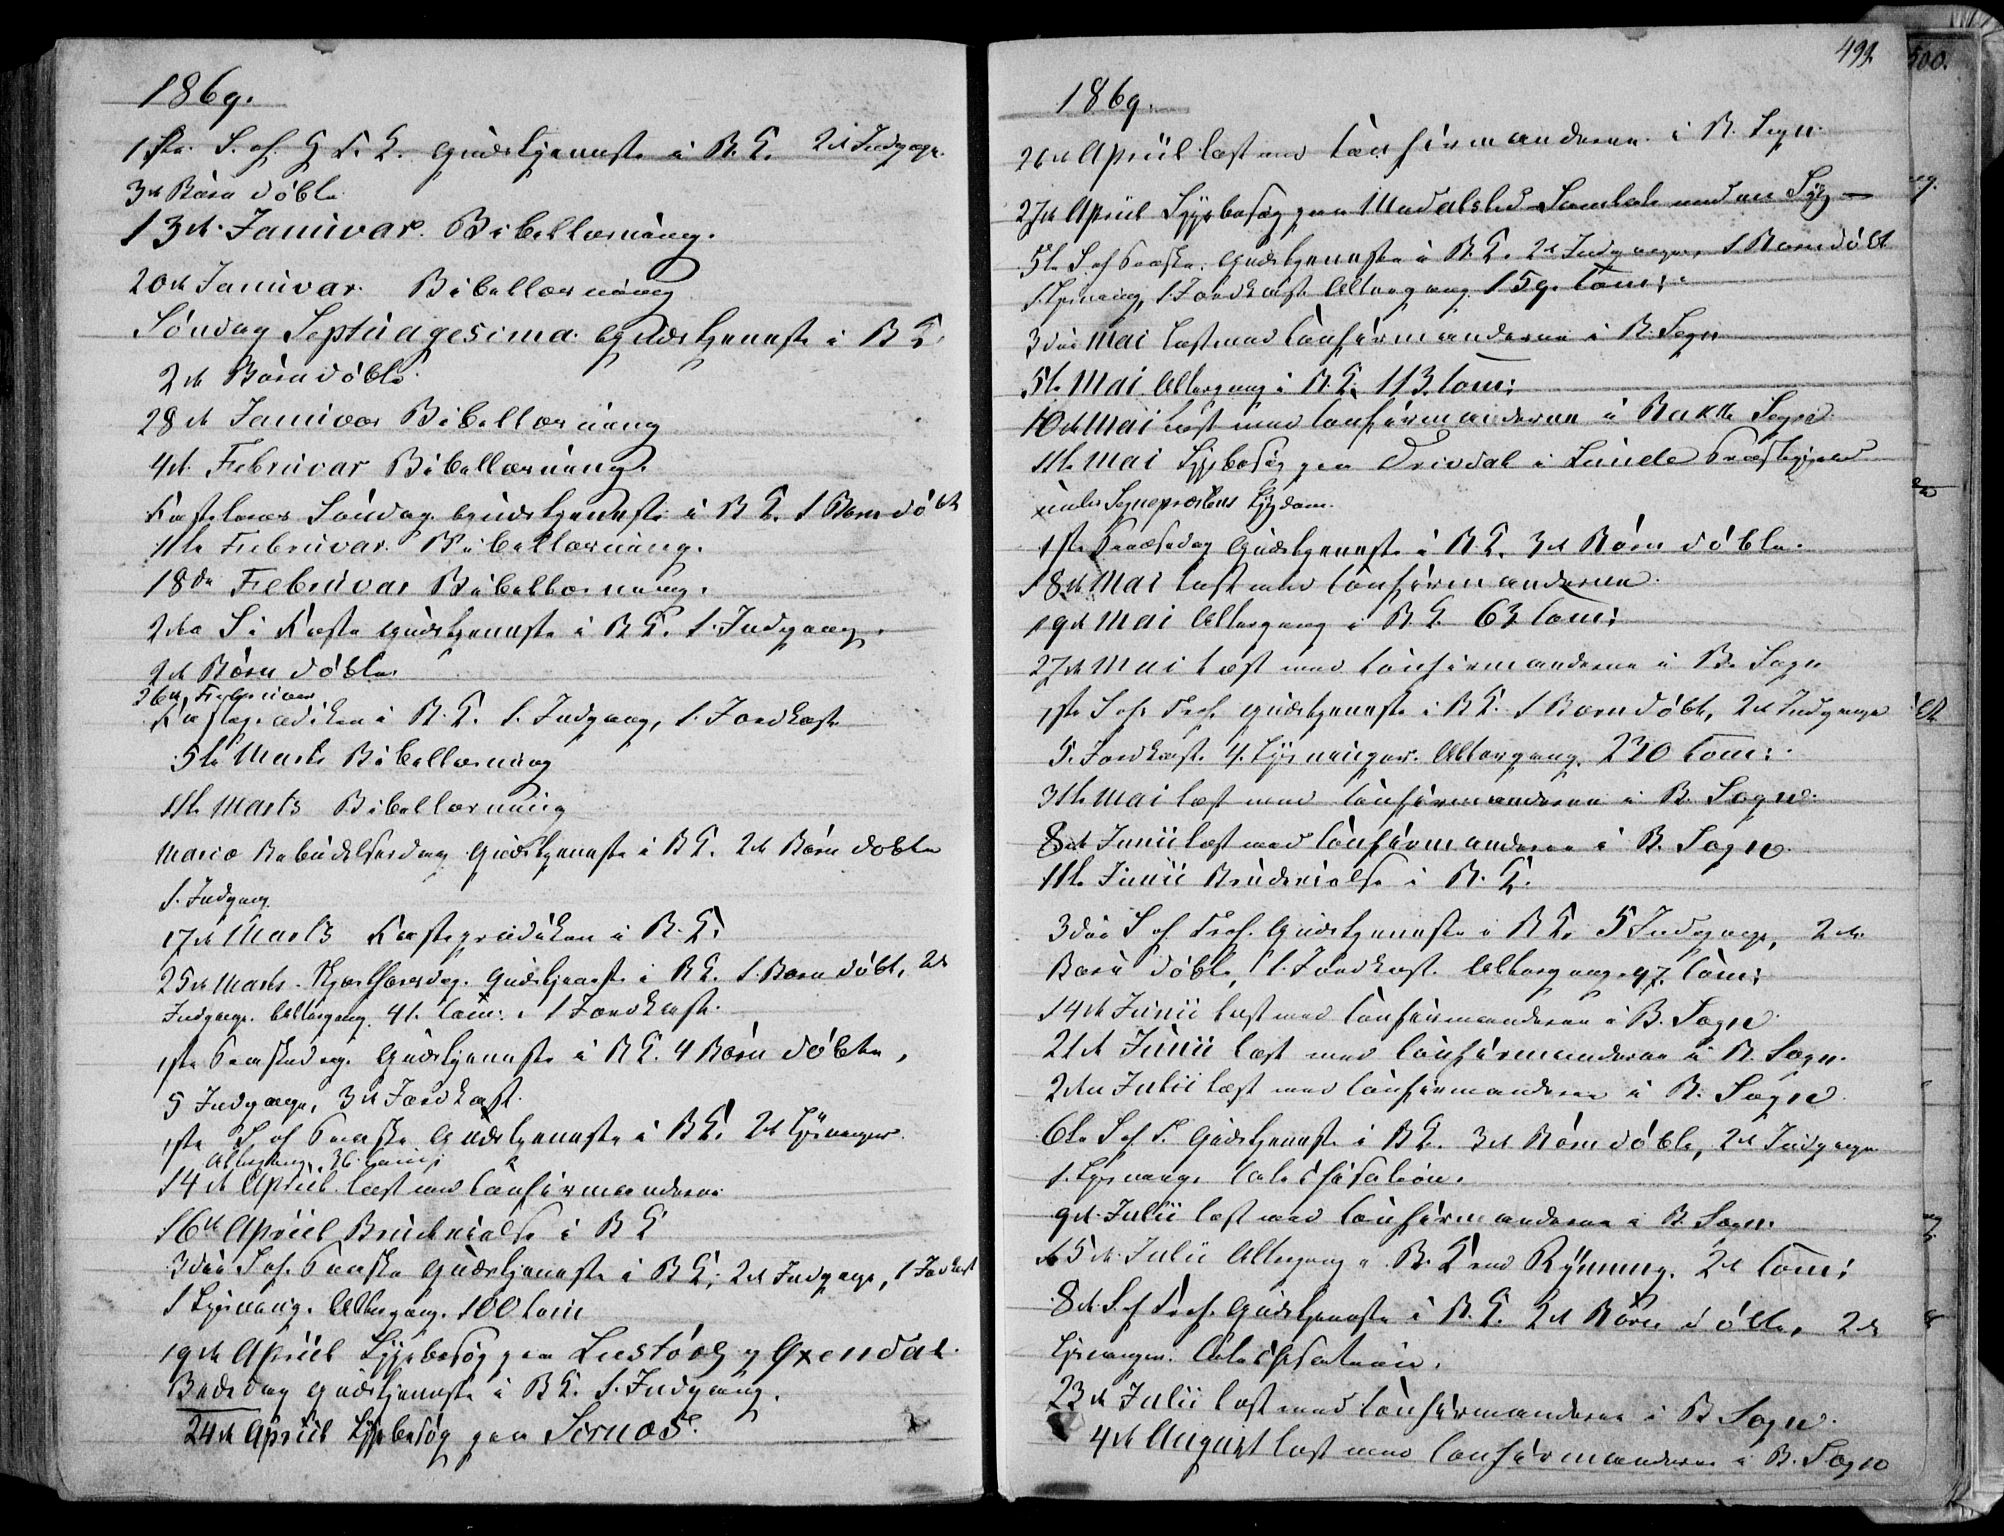 1869.
1ste S. ef. H T. K. Gudstjeneste i B.K. 2de Indgange.
3de Børn døbte
13de Januvar. Bibellæsning.
20de Januvar. Bibellæsning
Søndag Septuagesima. Gudstjeneste i B K.
2de Børn døbte.
28de Januvar Bibellæsning
4de Februvar Bibellæsning.
Fastelavns Søndag. Gudstjeneste i B K. 1 Barn døbt
11te Februvar. Bibellæsning.
18de Februvar Bibellæsning.
2den S i Faste Gudstjeneste i B K. 1. Indgang.
2de Børn døbte
26de Februvar
Fasteprædiken i B. K. 1. Indgang, 1. Jordkast
5te Marts Bibellæsning
11te Marts Bibellæsning
Mariæ Bebudelsesdag Gudstjeneste i B K. 2de Børn døbte
1. Indgang
17de Marts Fasteprædiken i B. K.
25de Marts. Skjærthorsdag. Gudstjeneste i B K. 1. Barn døbt, 2de
Indgange. Altergang. 41. Com: 1 Jordkast.
1ste Paaskedag. Gudstjeneste i B K. 4 Børn døbte,
5 Indgange, 3de Jordkast.
1ste S. ef Paaske Gudstjeneste i B K. 2de Lysninger.
Altergang. 36. Com:
14de April læst med Confirmanderne
16de April Brudevielse i B K
3die S. ef. Paaske Gudstjeneste i B K. 2de Indgange, 1 Jordkast
1 Lysning. Altergang. 100 Com
19de April Sygebesøg paa Lustøl og Øxendal.
Bededag Gudstjeneste i B K. 1. Indgang.
24de April Sygebesøg paa Sirnæs.
499.
1869.
26de April læst med Confirmanderne i B. Sogn.
27de April Sygebesøg paa Samtale med en Syg
5te S. ef Paaske. Gudstjeneste i B. K. 2de Indgange, 1 Barn døbt
1. Lysning, 1. Jordkast Altergang 159. Com:
3die Mai læst med Confirmanderne i B. Sogn
5te Mai Altergang i B. K. 113. Com:
10de Mai læst med Confirmanderne i Bakke Sogn
11te Mai Sygebesøg paa Drivdal i Lunde Præstegjeld
under Sognepræstens Sygdom.
1ste Pintsedag Gudstjeneste i B. K. 3de Børn døbte.
18de Mai læst med Confirmanderne.
19de Mai Altergang i B K. 63 Com:
27de Mai læst med Confirmanderne i B. Sogn
1ste S. ef. Tref. Gudstjeneste i B K. 1 Barn døbt, 2de Indgange
5. Jordkast. 4. Lysninger. Altergang. 230 Com:
31te Mai læst med Confirmanderne i B. Sogn.
8de Junii læst med Confirmanderne i B. Sogn
11te Junii Brudevielse i B. K.
3die S. ef Tref. Gudstjeneste i B K. 5 Indgange, 2de
Børn døbte, 1. Jordkast. Altergang. 97. Com:
14de Junii læst med Confirmanderne i B. Sogn
21de Junii læst med Confirmanderne i B. Sogn.
2den Julii læst med Confirmanderne i B. Sogn
6te S. ef T. Gudstjeneste i B K. 3de Børn døbte, 2de Indgange
1. Lysning. Catechisation.
9de Julii læst med Confirmanderne i B. Sogn.
15de Julii Altergang i B. K ved Rynning. 2de Com:
8de S. ef Tref. Gudstjeneste i B. K. 2de Børn døbte, 2de
Lysninger. Catechisation.
23de Julii læst med Confirmanderne i B Sogn.
4de August læst med Confirmanderne i B. Sogn
500.